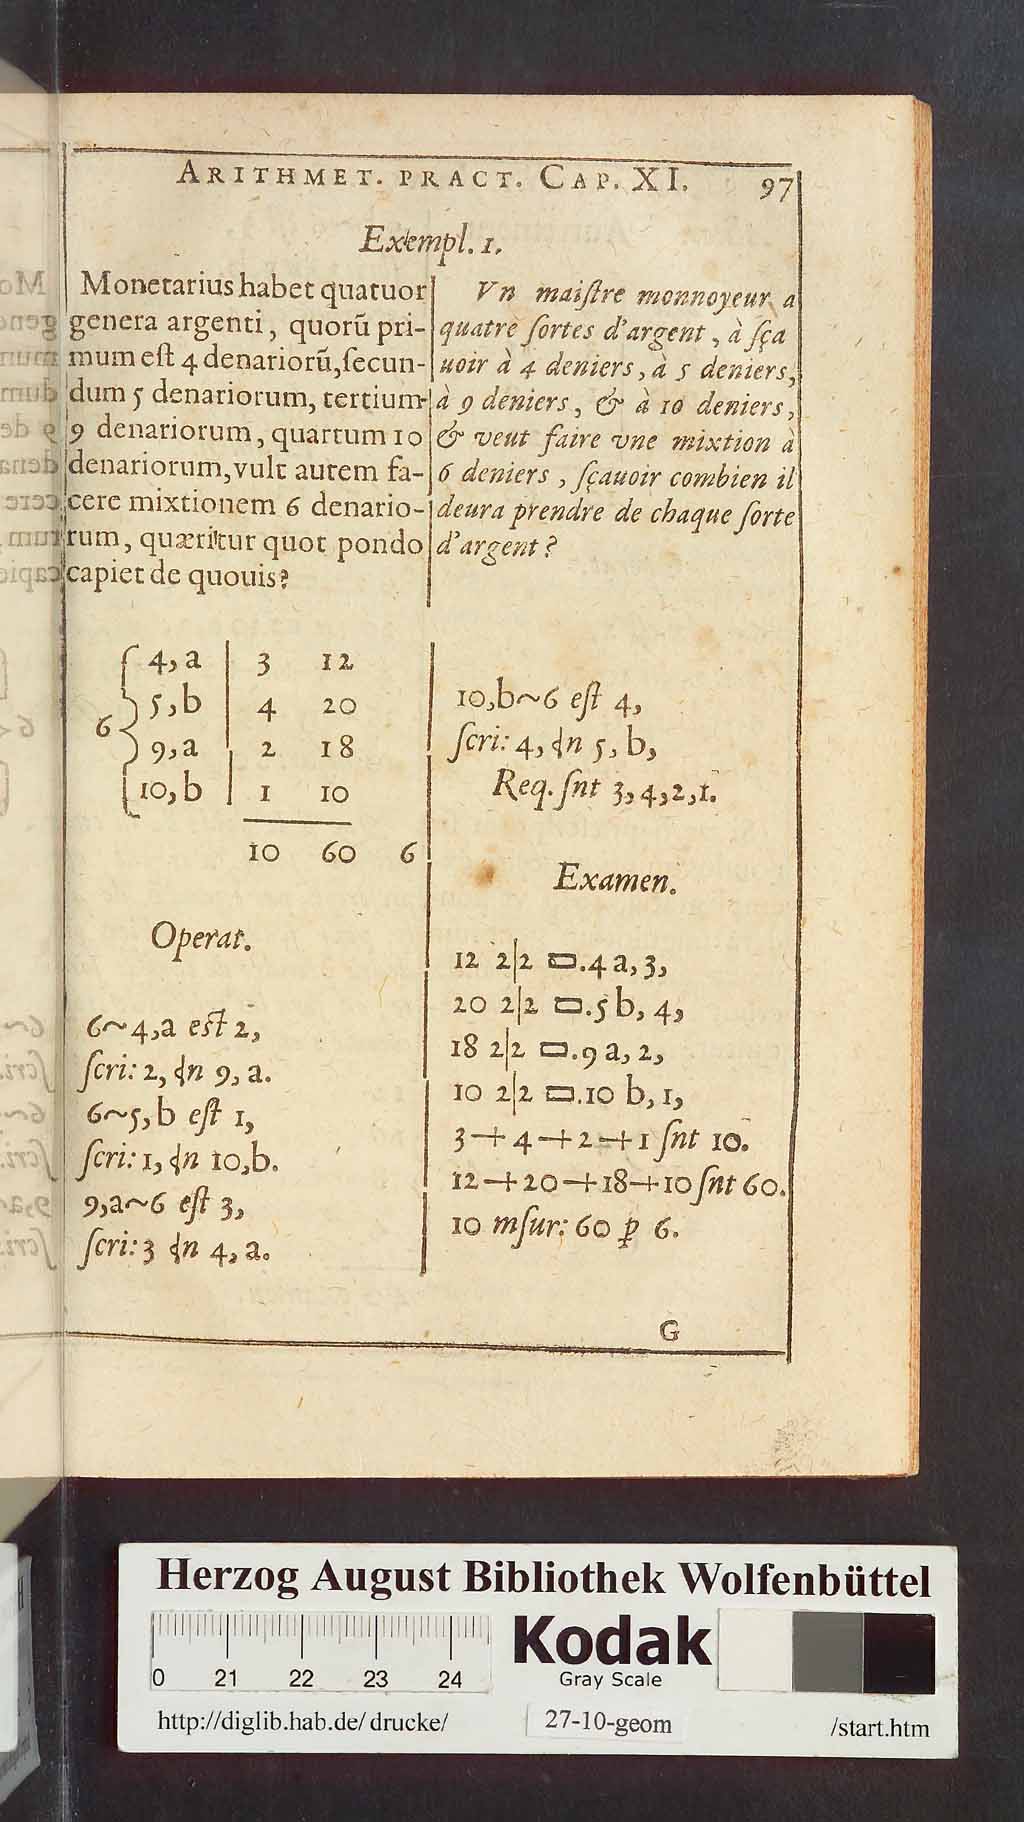 ARITHMET. PRACT. CAP. XI. 97
Exempl. 1.
Monetarius habet quatuor
genera argenti, quorũ pri-
mum eſt 4 denariorũ, ſecun-
dum 5 denariorum, tertium
9 denariorum, quartum 10
denariorum, vult autem fa-
cere mixtionem 6 denario-
rum, quæritur quot pondo
capiet de quouis?
Vn maiſtre monnoyeur a
quatre ſortes d'argent, à ſça
uoir à 4 deniers, à 5 deniers,
à 9 deniers, & à 10 deniers,
& veut faire vne mixtion à
6 deniers, ſçauoir combien il
deura prendre de chaque ſorte
d'argent?
4, a 3 12
5, b 4 20
6
9, a 2 18
10, b 1 10
10 60 6
Operat.
6~4, a est 2,
ſcri: 2, n 9, a.
6~5, b eſt 1,
ſcri: 1, n 10, b.
9, a~6 eſt 3,
ſcri: 3 n 4, a.
10, b~6 eſt 4,
ſcri: 4, n 5, b,
Req. ſnt 3, 4, 2, 1.
Examen.
12 2|2 ▭.4 a, 3,
20 2|2 ▭.5 b, 4,
18 2|2 ▭.9 a, 2,
10 2|2 ▭.10 b, 1,
3+4+2+1 ſnt 10.
12+20+18+10 ſnt 60.
10 mſur: 60 ꝑ 6.
G
Herzog August Bibliothek Wolfenbüttel
0 21 22 23 24
Kodak
Gray Scale
http://diglib.hab.de/drucke/
27-10-geom
/start.htm